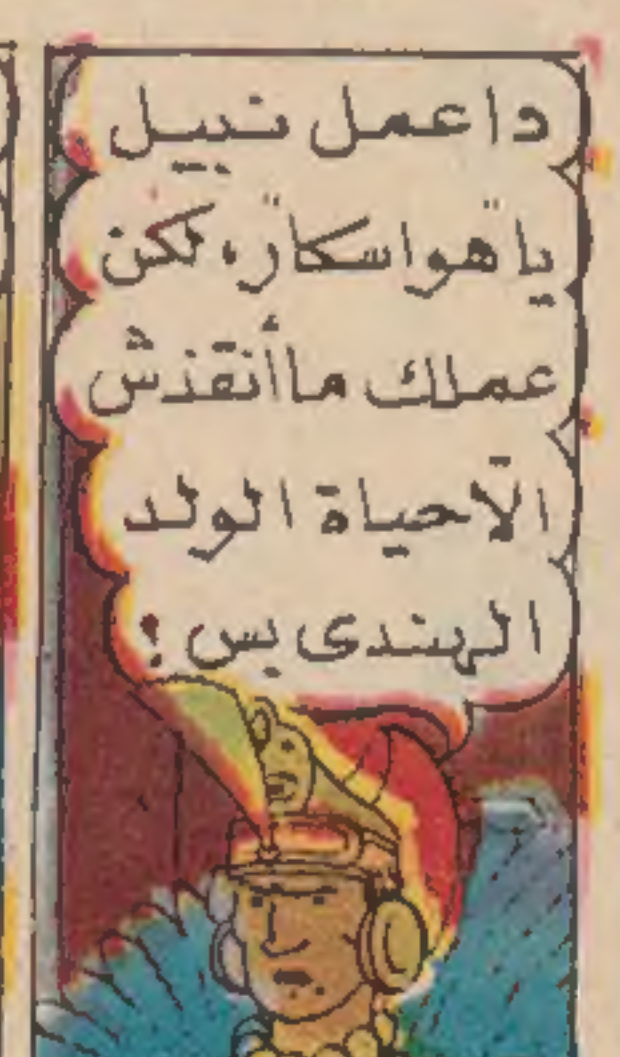 داعمل نبيل
ياهواسكار، لكن
عملك ماأنقذش
الّاحياة الولد
الهندى بس !